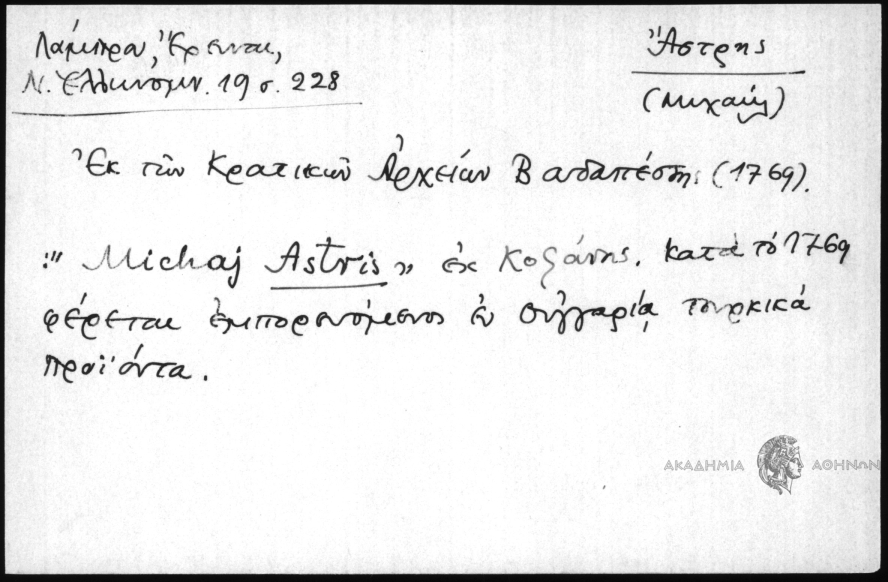 Λάμπρου, Ἔρευναι,
Ν. Ἑλληνομν. 19 σ. 228
Ἄστρης
(Μιχαήλ)
Ἐκ τῶν Κρατικῶν Ἀρχείων Βουδαπέστης (1769).
:" Michaj Astris" ἐκ Κοζάνης. κατὰ τὸ 1769
φέρεται ἐμπορευόμενος ἐν Οὑγγαρίᾳ τουρκικά
προϊόντα.
ΑΚΑΔΗΜΙΑ ΑΘΗΝΩΝ